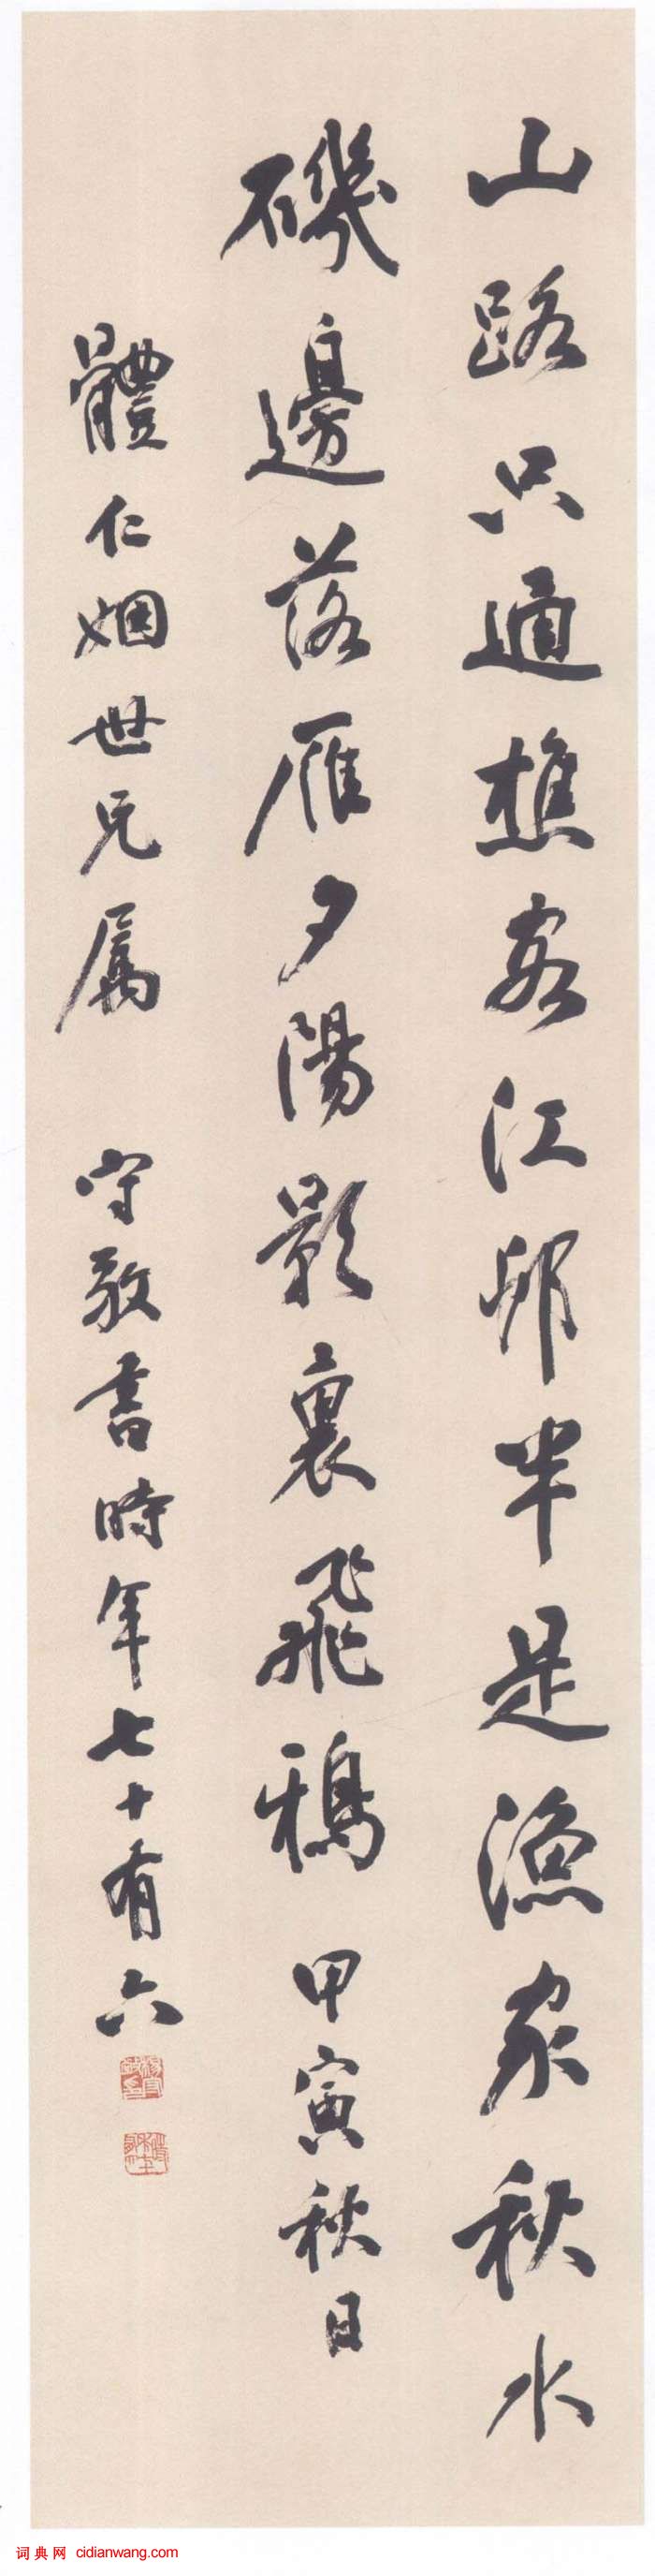 山路只通樵客江邨半是漁家秋水
磯邊落雁夕陽影裏飛鴉 甲寅秋日
體仁姻世兄属 守敬書時年七十有六
词典网 cidianwang.com